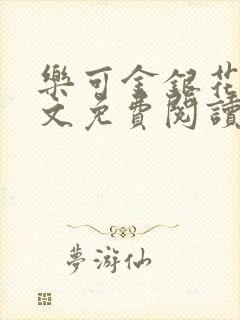 樂可金銀花
文免費閱讀
夢游仙